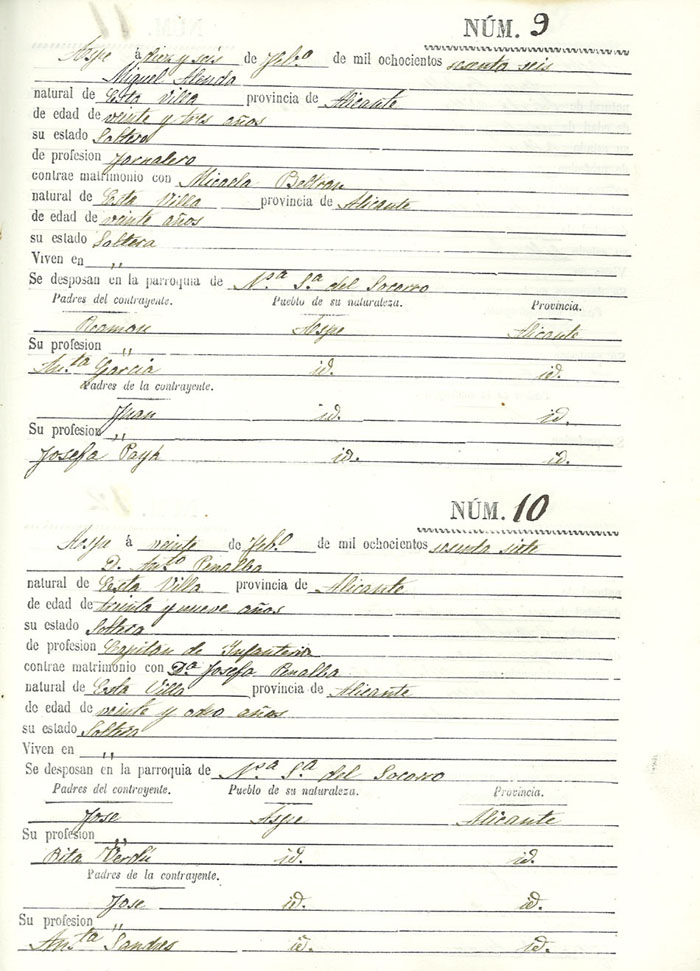 NÚM. 9
Aspe á diez y seis de Feb.o de mil ochocientos sesenta seis
Miguel Alenda
natural de Esta Villa provincia de Alicante
de edad de veinte y tres años
su estado Soltero
de profesion Jornalero
contrae matrimonio con Micaela Beltran
natural de Esta Villa provincia de Alicante
de edad de veinte años
su estado Soltera
Viven en "
Se desposan en la parroquia de N.sa S.a del Socorro
Padres del contrayente. Pueblo de su naturaleza. Provincia.
Ramon Aspe Alicante
Su profesion "
An.ta Garcia id. id.
Padres de la contrayente.
Juan id. id.
Su profesion "
Josefa Payá id. id.
NÚM. 10
Aspe á veinte de Feb.o de mil ochocientos sesenta siete
D. Ant.o Penalba
natural de Esta Villa provincia de Alicante
de edad de treinta y nueve años
su estado Soltero
de profesion Capitan de Infanteria
contrae matrimonio con D.a Josefa Penalba
natural de Esta Villa provincia de Alicante
de edad de veinte y ocho años
su estado Soltera
Viven en "
Se desposan en la parroquia de N.sa S.a del Socorro
Padres del contrayente. Pueblo de su naturaleza. Provincia.
Jose Aspe Alicante
Su profesion "
Rita Verdú id. id.
Padres de la contrayente.
Jose id. id.
Su profesion "
An.ta id. id.